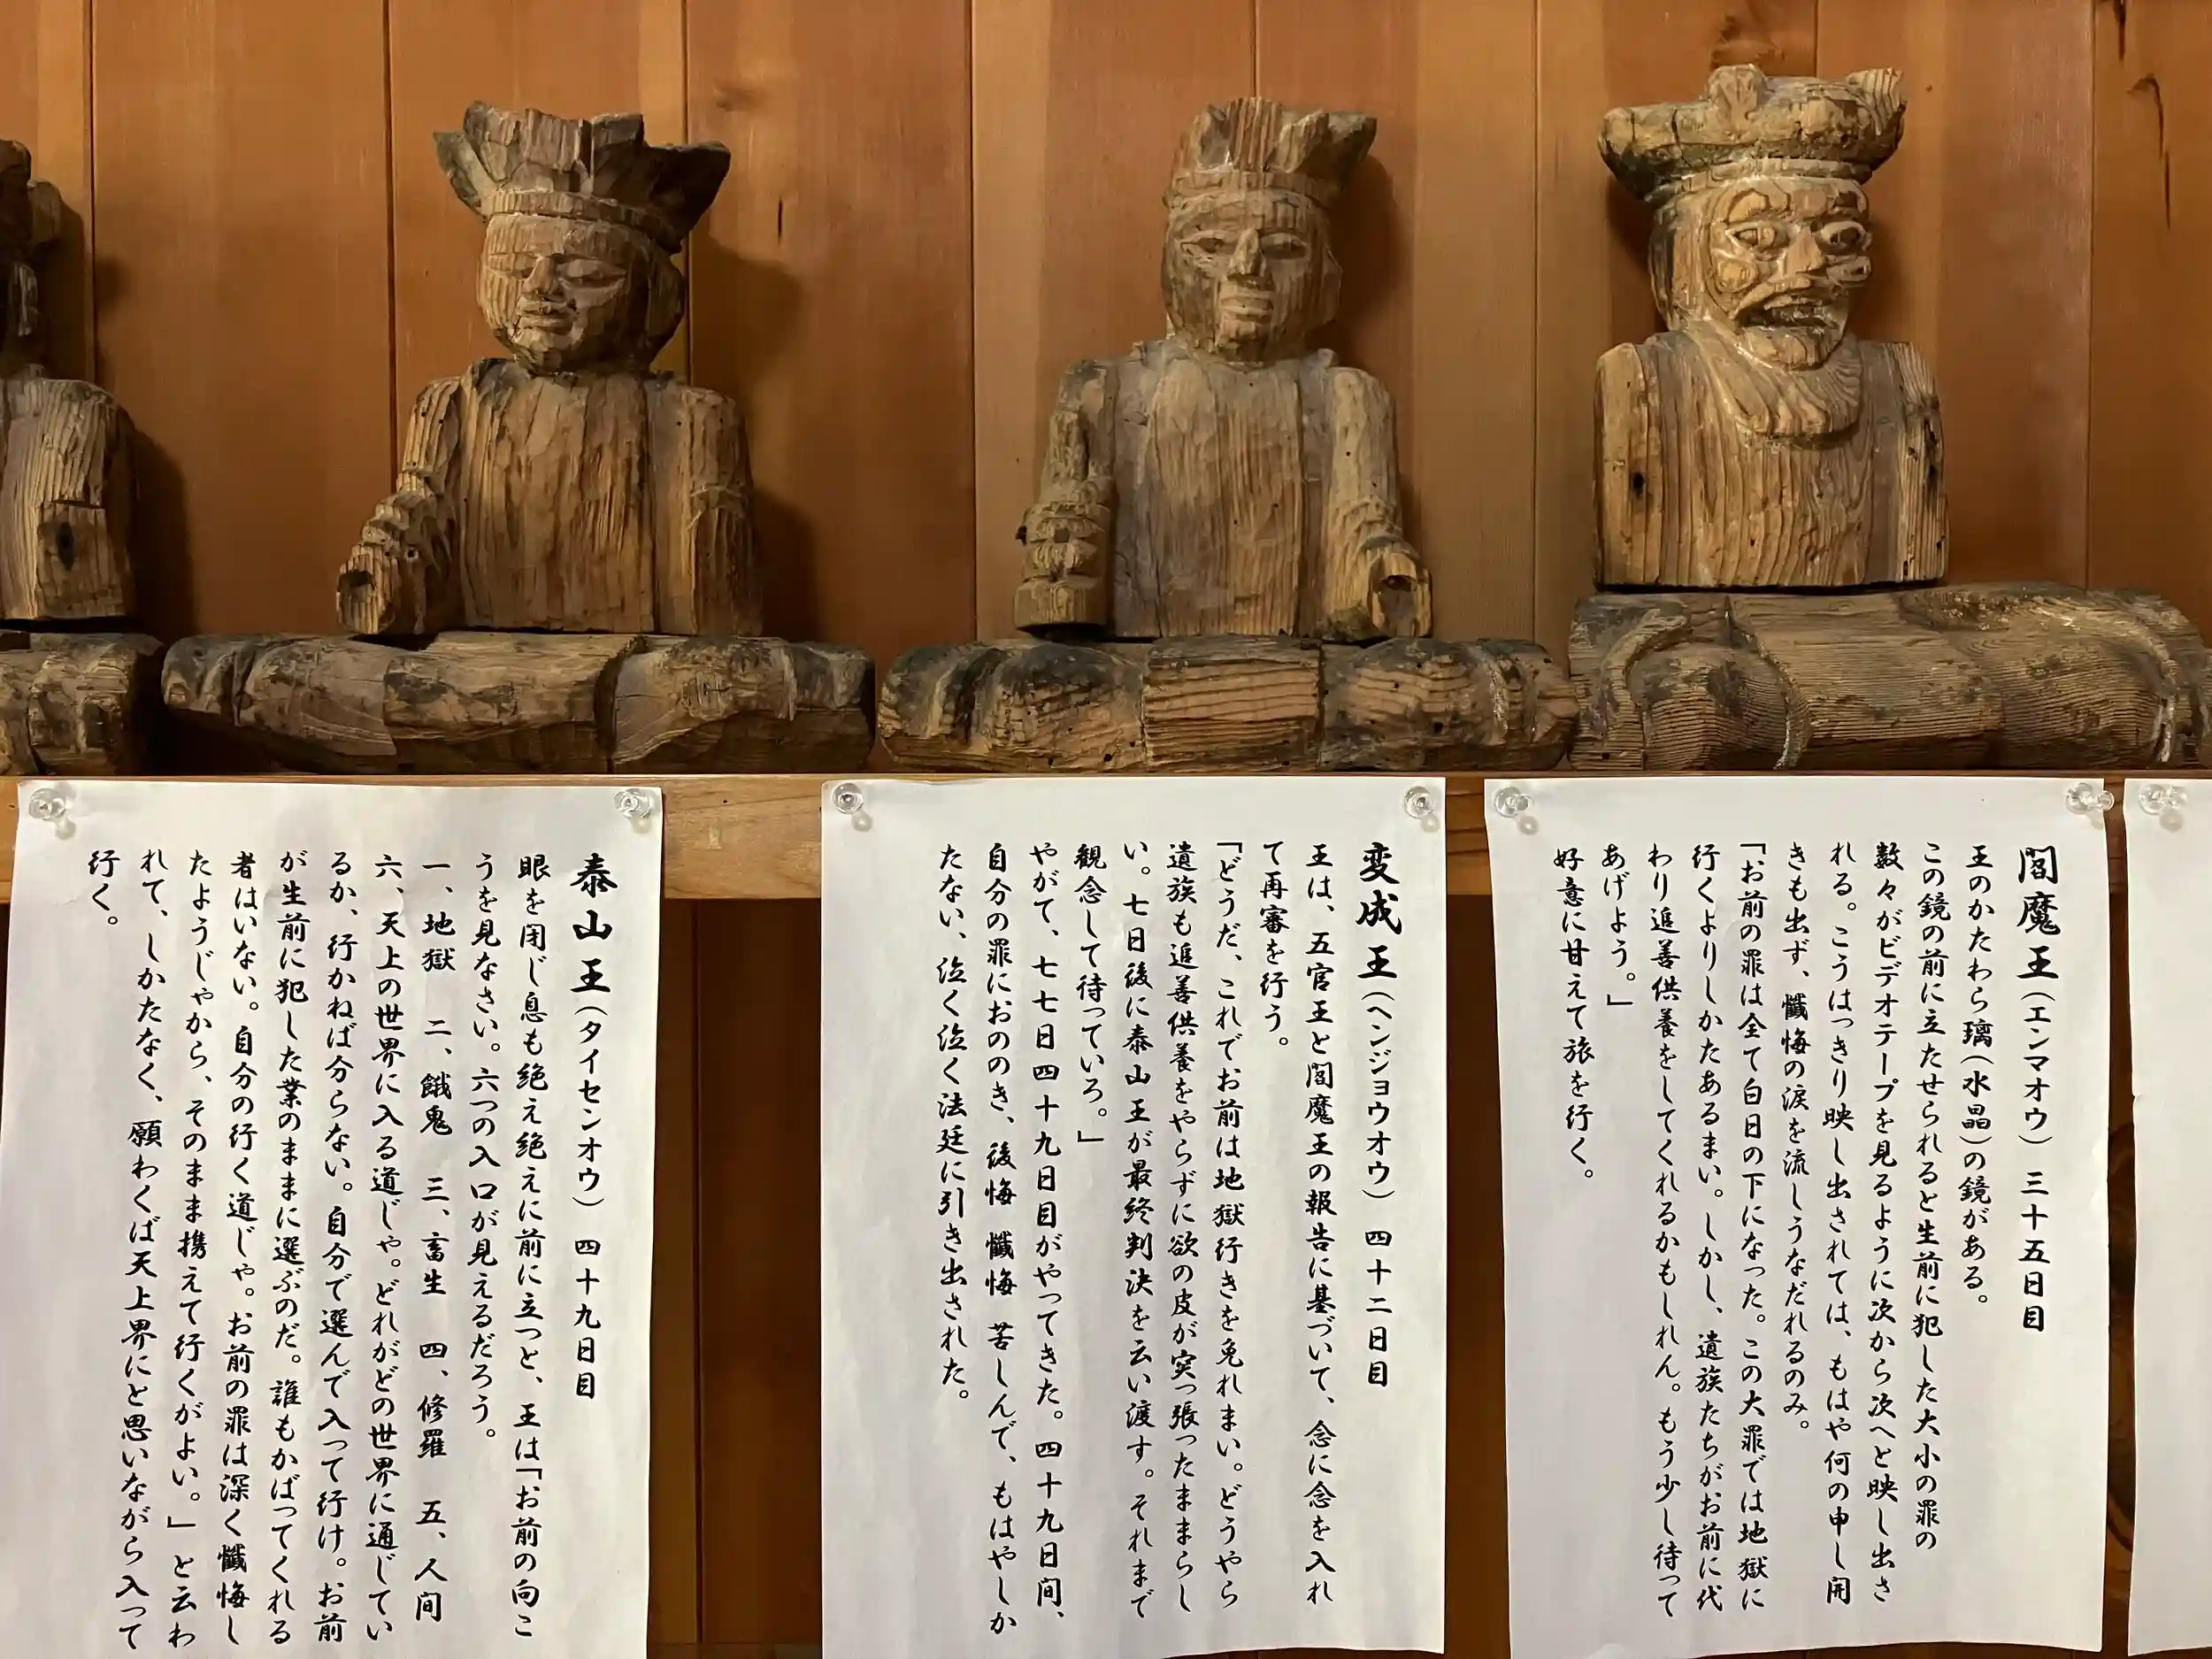 閻魔王（エンマオウ） 三十五日目
王のかたわら璃（水晶）の鏡がある。
この鏡の前に立たせられると生前に犯した大小の罪の
数々がビデオテープを見るように次から次へと映し出さ
れる。こうはっきり映し出されては、もはや何の申し開
きも出ず、懺悔の涙を流しうなだれるのみ。
「お前の罪は全て白日の下になった。この大罪では地獄に
行くよりしかたあるまい。しかし、遺族たちがお前に代
わり追善供養をしてくれるかもしれん。もう少し待って
あげよう。」
好意に甘えて旅を行く。
変成王（ヘンジョウオウ） 四十二日目
王は、五官王と閻魔王の報告に基づいて、念に念を入れ
て再審を行う。
「どうだ、これでお前は地獄行きを免れまい。どうやら
遺族も追善供養をやらずに欲の皮が突っ張ったままらし
い。七日後に泰山王が最終判決を云い渡す。それまで
観念して待っていろ。」
やがて、七七日四十九日目がやってきた。四十九日間、
自分の罪におののき、後悔 懺悔 苦しんで、もはやしか
たない、泣く泣く法廷に引き出された。
泰山王（タイセンオウ） 四十九日目
眼を閉じ息も絶え絶えに前に立つと、王は「お前の向こ
うを見なさい。六つの入口が見えるだろう。
一、地獄 二、餓鬼 三、畜生 四、修羅 五、人間
六、天上の世界に入る道じゃ。どれがどの世界に通じてい
るか、行かねば分らない。自分で選んで入って行け。お前
が生前に犯した業のままに選ぶのだ。誰もかばってくれる
者はいない。自分の行く道じゃ。お前の罪は深く懺悔し
たようじゃから、そのまま携えて行くがよい。」と云わ
れて、しかたなく、願わくば天上界にと思いながら入って
行く。